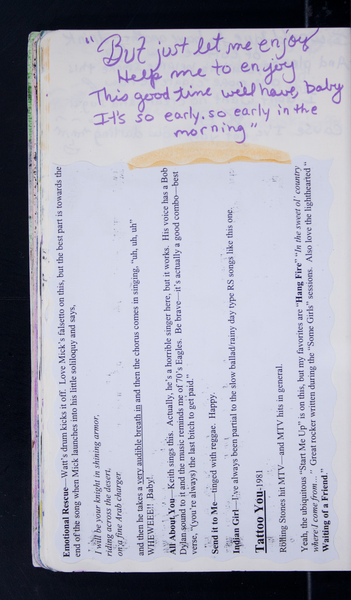 "But just let me enjoy
Help me to enjoy
This good time we'll have, baby
It's so early. so early in the
morning"
Emotional Rescue—Watt's drum kicks it off.  Love Mick's falsetto on this, but the best part is towards the
end of the song when Mick launches into his little soliloquy and says,
I will be your knight in shining armor,
riding across the desert,
on a fine Arab charger
and then he takes a very audible breath in and then the chorus comes in singing, "uh, uh, uh"
WHEWEEE!!  Baby!
All About You—Keith sings this.  Actually, he's a horrible singer here, but it works.  His voice has a Bob
Dylan sound to it and the music reminds me of 70's Eagles.  Be brave—it's actually a good combo—best
verse, "(you're always) the last bitch to get paid."
Send it to Me—tinged with reggae.  Happy.
Indian Girl—I've always been partial to the slow ballad/rainy day type RS songs like this one.
Tattoo You-1981
Rolling Stones hit MTV—and MTV hits in general.
Yeah, the ubiquitous "Start Me Up" is on this, but my favorites are "Hang Fire" "In the sweet ol' country
where I come from…"  Great rocker written during the "Some Girls" sessions.  Also love the lighthearted "
Waiting of a Friend."